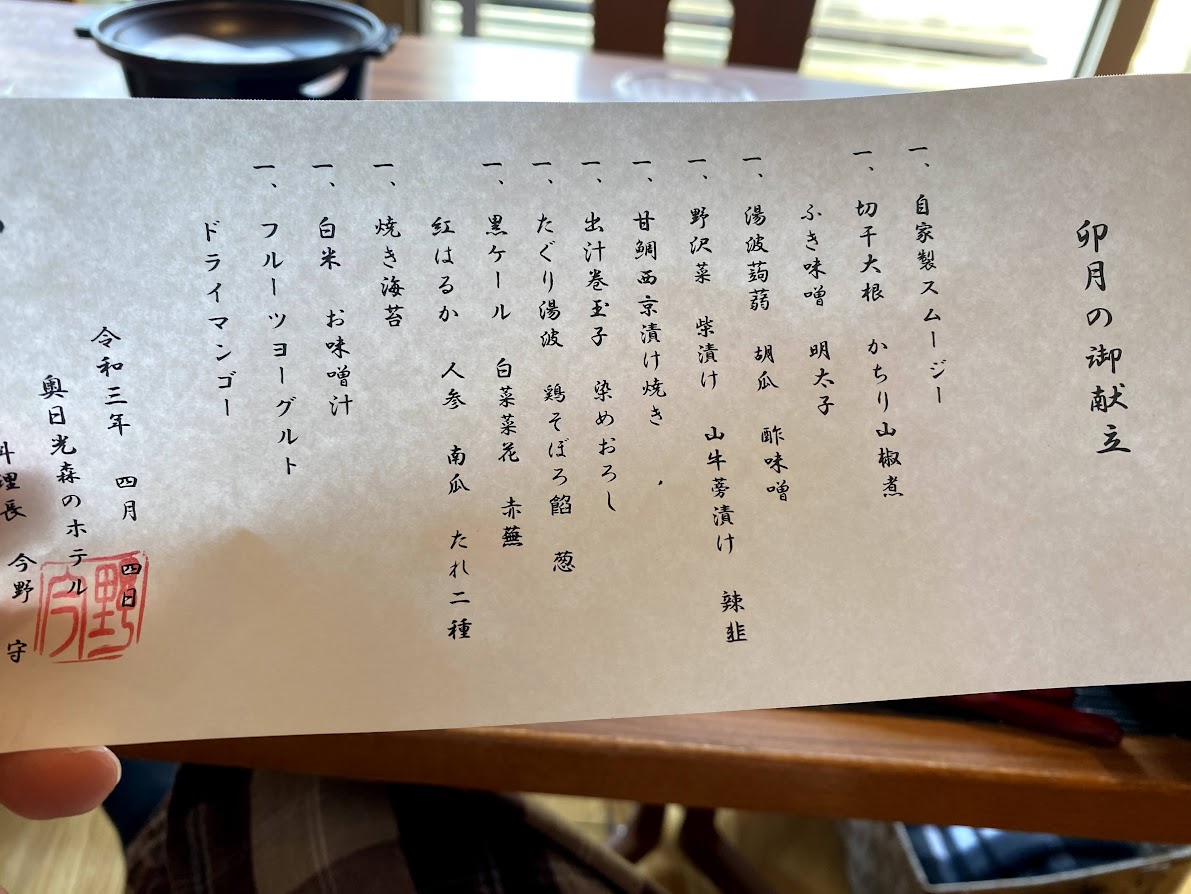 卯月の御献立
一、自家製スムージー
一、切干大根 かちり山椒煮
ふき味噌 明太子
一、湯波蒟蒻 胡瓜 酢味噌
一、野沢菜 柴漬け 山牛蒡漬け 辣韮
一、甘鯛西京漬け焼き
一、出汁巻玉子 染めおろし
一、たぐり湯波 鶏そぼろ餡 葱
一、黒ケール 白菜菜花 赤蕪
紅はるか 人参 南瓜 たれ二種
一、焼き海苔
一、白米 お味噌汁
一、フルーツヨーグルト
ドライマンゴー
令和三年 四月 四日
奥日光森のホテル
料理長 今野 守
今野